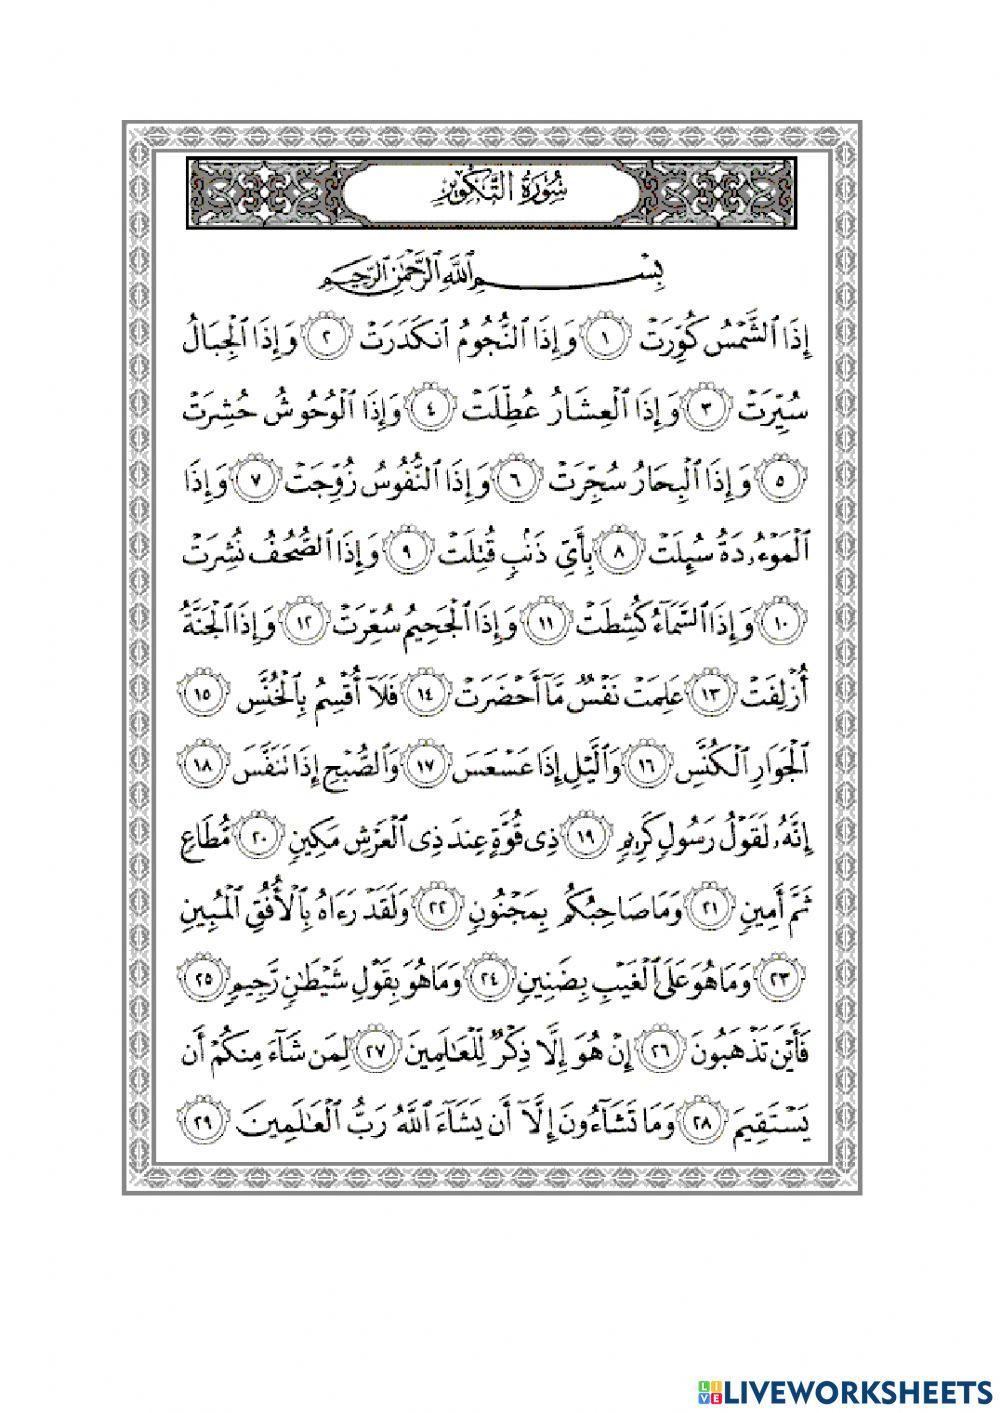 سُورَةُ التَّكْوِيرِ
بِسْمِ ٱللَّهِ ٱلرَّحْمَٰنِ ٱلرَّحِيمِ
إِذَا ٱلشَّمْسُ كُوِّرَتْ ١ وَإِذَا ٱلنُّجُومُ ٱنكَدَرَتْ ٢ وَإِذَا ٱلْجِبَالُ
سُيِّرَتْ ٣ وَإِذَا ٱلْعِشَارُ عُطِّلَتْ ٤ وَإِذَا ٱلْوُحُوشُ حُشِرَتْ
٥ وَإِذَا ٱلْبِحَارُ سُجِّرَتْ ٦ وَإِذَا ٱلنُّفُوسُ زُوِّجَتْ ٧ وَإِذَا
ٱلْمَوْءُۥدَةُ سُئِلَتْ ٨ بِأَىِّ ذَنۢبٍ قُتِلَتْ ٩ وَإِذَا ٱلصُّحُفُ نُشِرَتْ
١٠ وَإِذَا ٱلسَّمَآءُ كُشِطَتْ ١١ وَإِذَا ٱلْجَحِيمُ سُعِّرَتْ ١٢ وَإِذَا ٱلْجَنَّةُ
أُزْلِفَتْ ١٣ عَلِمَتْ نَفْسٌ مَّآ أَحْضَرَتْ ١٤ فَلَآ أُقْسِمُ بِٱلْخُنَّسِ ١٥
ٱلْجَوَارِ ٱلْكُنَّسِ ١٦ وَٱلَّيْلِ إِذَا عَسْعَسَ ١٧ وَٱلصُّبْحِ إِذَا تَنَفَّسَ ١٨
إِنَّهُۥ لَقَوْلُ رَسُولٍ كَرِيمٍ ١٩ ذِى قُوَّةٍ عِندَ ذِى ٱلْعَرْشِ مَكِينٍ ٢٠ مُّطَاعٍ
ثَمَّ أَمِينٍ ٢١ وَمَا صَاحِبُكُم بِمَجْنُونٍ ٢٢ وَلَقَدْ رَءَاهُ بِٱلْأُفُقِ ٱلْمُبِينِ
٢٣ وَمَا هُوَ عَلَى ٱلْغَيْبِ بِضَنِينٍ ٢٤ وَمَا هُوَ بِقَوْلِ شَيْطَٰنٍ رَّجِيمٍ ٢٥
فَأَيْنَ تَذْهَبُونَ ٢٦ إِنْ هُوَ إِلَّا ذِكْرٌ لِّلْعَٰلَمِينَ ٢٧ لِمَن شَآءَ مِنكُمْ أَن
يَسْتَقِيمَ ٢٨ وَمَا تَشَآءُونَ إِلَّآ أَن يَشَآءَ ٱللَّهُ رَبُّ ٱلْعَٰلَمِينَ ٢٩
LIVE LIVEWORKSHEETS